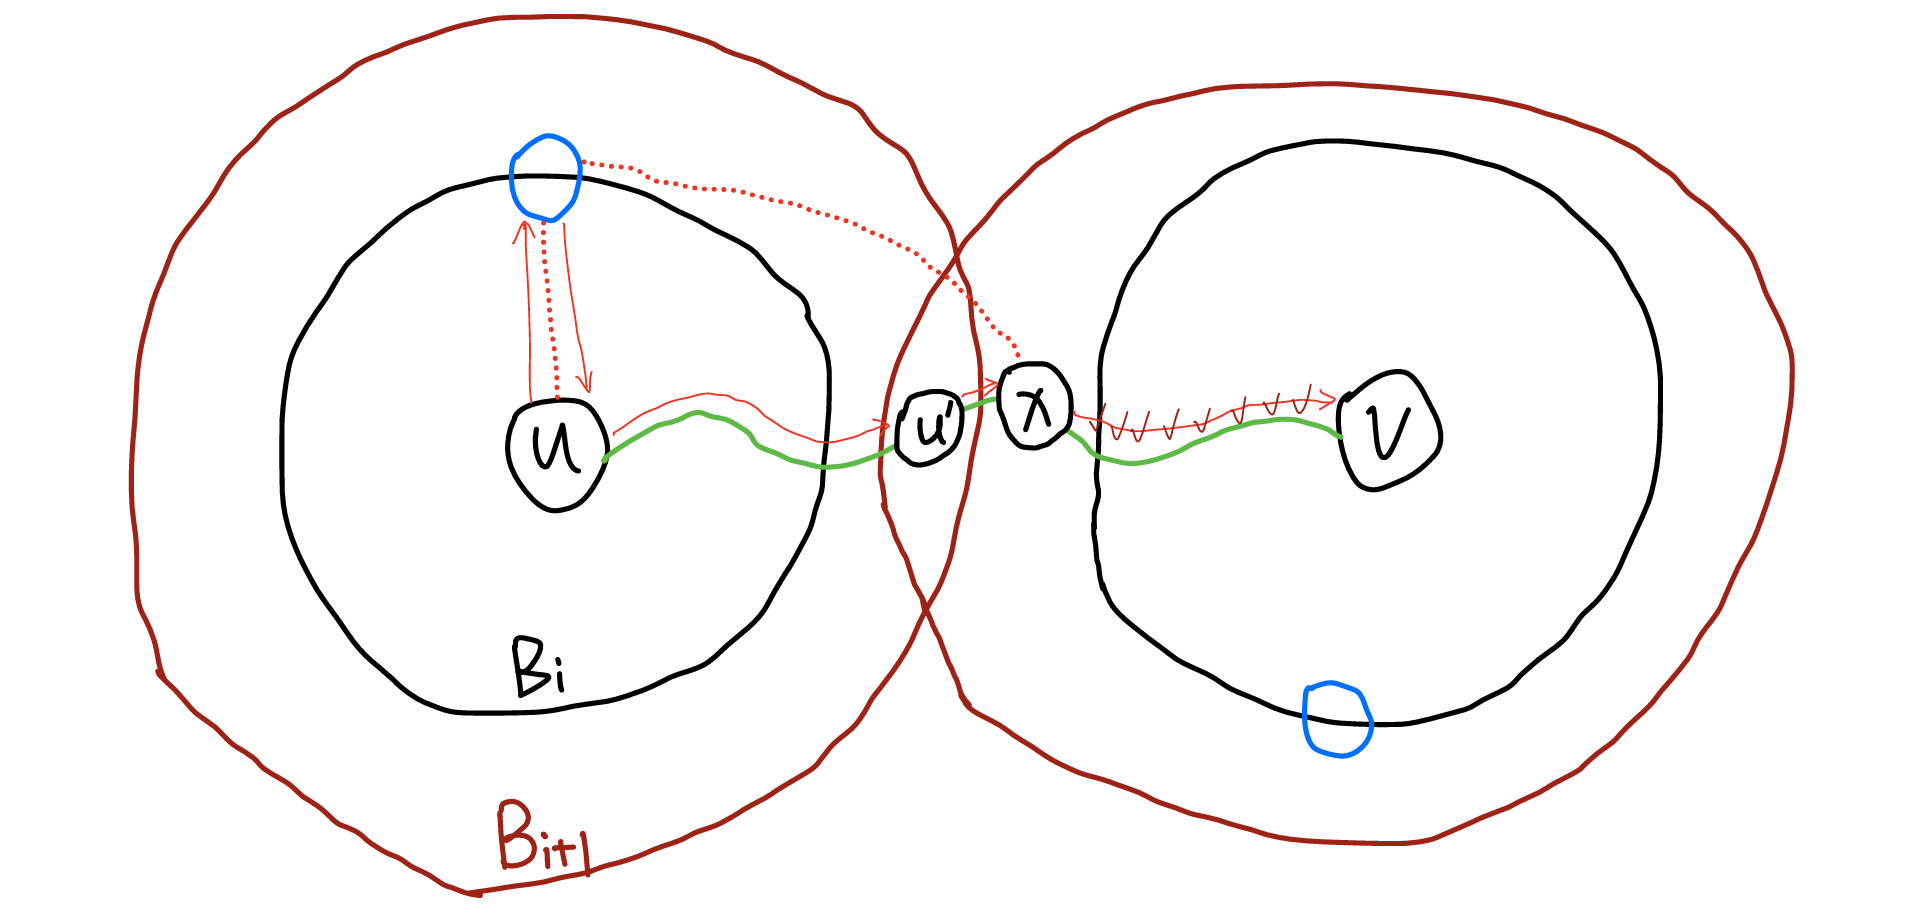 u
u'
X
V
Bi
Bi+1